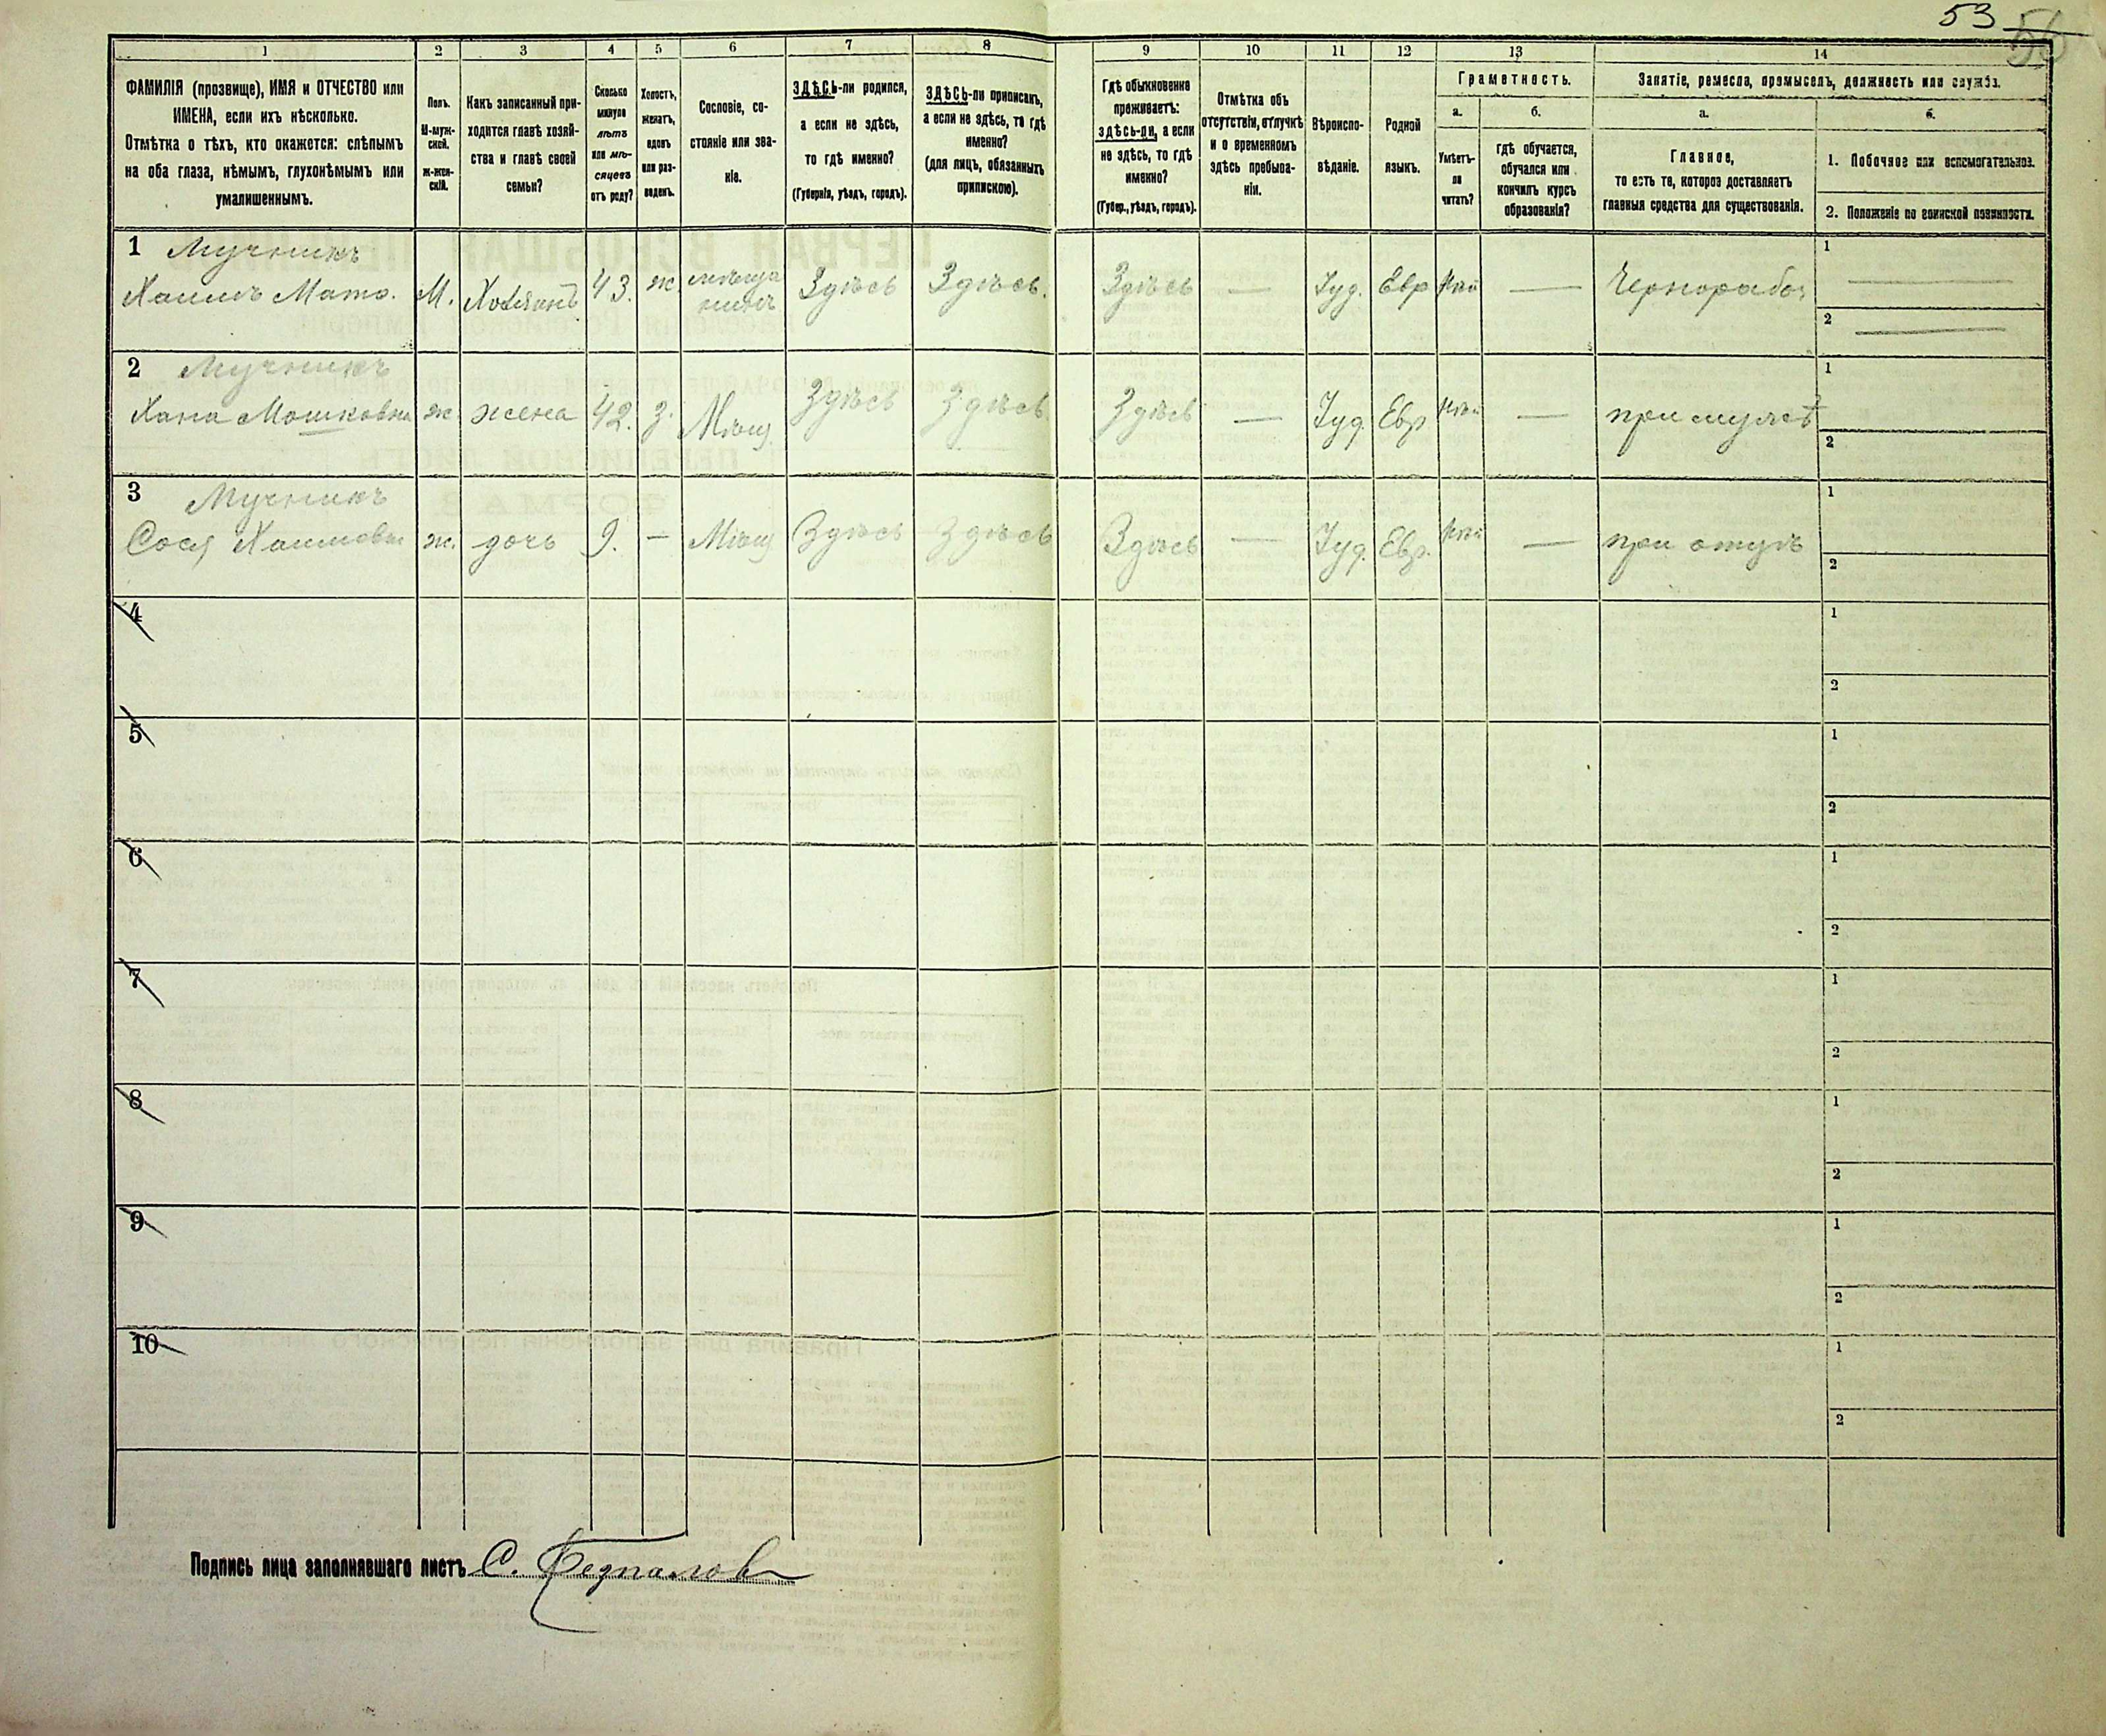 53
56
1
2
3
4
5
6
7
8
9
10
11
12
13
14
ФАМИЛІЯ (прозвище), ИМЯ и ОТЧЕСТВО или
ИМЕНА, если ихъ нѣсколько.
Отмѣтка о тѣхъ, кто окажется: слѣпымъ
на оба глаза, нѣмымъ, глухонѣмымъ или
умалишеннымъ.
Полъ.
М-муж-
ской.
ж-жен-
скій.
Какъ записанный при-
ходится главѣ хозяй-
ства и главѣ своей
семьи?
Сколько
минуло
лѣтъ
или мѣ-
сяцевъ
отъ роду?
Холостъ,
женатъ,
вдовъ
или раз-
веденъ.
Сословіе, со-
стояніе или зва-
ніе.
ЗДѢСЬ-ли родился,
а если не здѣсь,
то гдѣ именно?
(Губернія, уѣздъ, городъ).
ЗДѢСЬ-ли приписанъ,
а если не здѣсь, то гдѣ
именно?
(для лицъ, обязанныхъ
припискою).
Гдѣ обыкновенно
проживаетъ:
здѣсь-ли, а если
не здѣсь, то гдѣ
именно?
(Губер., уѣздъ, городъ).
Отмѣтка объ
отсутствіи, отлучкѣ
и о временномъ
здѣсь пребыва-
ніи.
Вѣроиспо-
вѣданіе.
Родной
языкъ.
Грамотность.
а.
Умѣетъ-
ли
читать?
б.
гдѣ обучается,
обучался или
кончилъ курсъ
образованія?
Занятіе, ремесло, промыселъ, должность или служба.
а.
Главное,
то есть то, которое доставляетъ
главныя средства для существованія.
б.
1. Побочное или вспомогательное.
2. Положеніе по воинской повинности.
1 Мучникъ
Хаимъ Мато. М. Хозяинъ 43. ж. мѣща
нинъ Здѣсь Здѣсь. Здѣсь — Іуд. Евр — Чернорабоч
1 —
2 —
2 Мучникъ
Хана Мошковна ж. жена 42. з. Мѣщ Здѣсь Здѣсь Здѣсь — Іуд. Евр — при мужѣ
1
2
3 Мучникъ
Сося Хаимовна ж. дочь 9. — Мѣщ Здѣсь Здѣсь Здѣсь — Іуд. Евр. — при отцѣ
1
2
4
1
2
5
1
2
6
1
2
7
1
2
8
1
2
9
1
2
10
1
2
Подпись лица заполнявшаго листъ С.